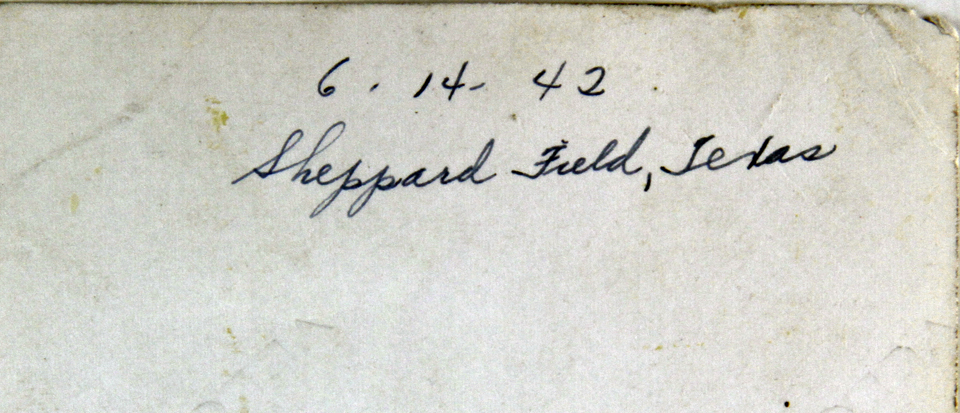 6 . 14 - 42
Sheppard Field, Texas